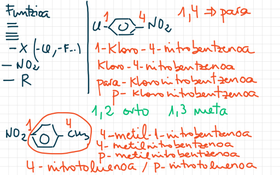 Funtzioa
- X (-Cl, -F...)
- NO₂
- R
1 4
Cl - NO₂
1,4 ⇒ para
1-Kloro-4-nitrobentzenoa
Kloro-4-nitrobentzenoa
para-Kloronitrobentzenoa
p-Kloronitrobentzenoa
1,2 orto 1,3 meta
1 4
NO₂ - CH₃
4-metil-1-nitrobentzenoa
4-metilnitrobentzenoa
p-metilnitrobentzenoa
4-nitrotoluenoa / p-nitrotoluenoa